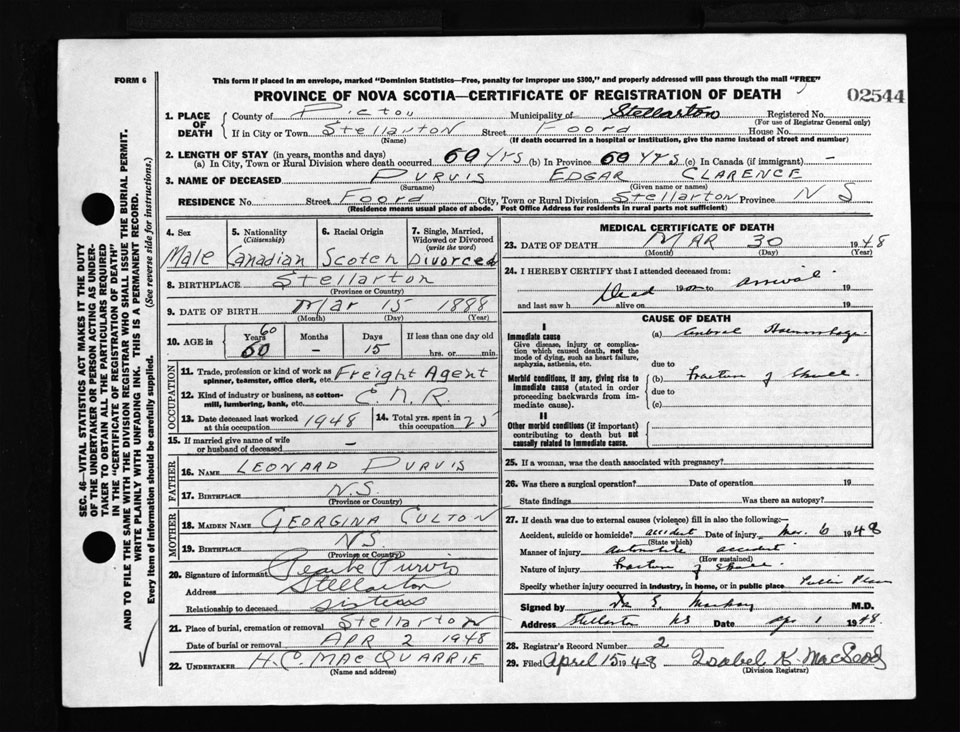 FORM 6
This form if placed in an envelope, marked "Dominion Statistics—Free, penalty for improper use $300," and properly addressed will pass through the mail "FREE"
PROVINCE OF NOVA SCOTIA—CERTIFICATE OF REGISTRATION OF DEATH
02544
1. PLACE OF DEATH
County of Pictou Municipality of Stellarton Registered No.
(For use of Registrar General only)
If in City or Town Stellarton Street Foord House No.
(Name) (If death occurred in a hospital or institution, give the name instead of street and number)
2. LENGTH OF STAY (in years, months and days)
(a) In City, Town or Rural Division where death occurred 60 yrs (b) In Province 60 yrs (c) In Canada (if immigrant) –
3. NAME OF DECEASED PURVIS EDGAR CLARENCE
(Surname) (Given name or names)
RESIDENCE No. Street Foord City, Town or Rural Division Stellarton Province N S
(Residence means usual place of abode. Post Office Address for residents in rural parts not sufficient)
4. Sex
Male
5. Nationality (Citizenship)
Canadian
6. Racial Origin
Scotch
7. Single, Married, Widowed or Divorced (write the word)
Divorced
8. BIRTHPLACE Stellarton
(Province or Country)
9. DATE OF BIRTH Mar 15 1888
(Month) (Day) (Year)
10. AGE in Years Months Days If less than one day old
60
60 – 15 hrs. or min.
OCCUPATION
11. Trade, profession or kind of work as spinner, teamster, office clerk, etc. Freight Agent
12. Kind of industry or business, as cotton-mill, lumbering, bank, etc. C.N.R.
13. Date deceased last worked at this occupation 1948
14. Total yrs. spent in this occupation 25
15. If married give name of wife or husband of deceased –
FATHER
16. NAME LEONARD PURVIS
17. BIRTHPLACE N.S.
(Province or Country)
MOTHER
18. MAIDEN NAME GEORGINA CULTON
19. BIRTHPLACE N.S.
(Province or Country)
20. Signature of informant Purvis
Address Stellarton
Relationship to deceased sister
21. Place of burial, cremation or removal Stellarton
Date of burial or removal APR 2 1948
22. UNDERTAKER H.C. MACQUARRIE
(Name and address)
MEDICAL CERTIFICATE OF DEATH
23. DATE OF DEATH MAR 30 1948
(Month) (Day) (Year)
24. I HEREBY CERTIFY that I attended deceased from:
Dead 19 on to arrival 19
and last saw h alive on 19
CAUSE OF DEATH
I
Immediate cause
Give disease, injury or complication which caused death, not the mode of dying, such as heart failure, asphyxia, asthenia, etc.
(a) Cerebral Haemorrhage
due to
Morbid conditions, if any, giving rise to immediate cause (stated in order proceeding backwards from immediate cause).
(b) Fracture of Skull.
due to
(c)
II
Other morbid conditions (if important) contributing to death but not causally related to immediate cause.
25. If a woman, was the death associated with pregnancy?
26. Was there a surgical operation? Date of operation 19
State findings Was there an autopsy?
27. If death was due to external causes (violence) fill in also the following:—
Accident, suicide or homicide? accident Date of injury 6 1948
(State which)
Manner of injury automobile accident
(How sustained)
Nature of injury fracture of skull.
Specify whether injury occurred in industry, in home, or in public place Public Place
Signed by E. MacKay M.D.
Address Stellarton NS Date Apr 1 1948.
28. Registrar's Record Number 2
29. Filed April 15 1948 Isabel K. MacLeod
(Division Registrar)
SEC. 46—VITAL STATISTICS ACT MAKES IT THE DUTY OF THE UNDERTAKER OR PERSON ACTING AS UNDERTAKER TO OBTAIN ALL THE PARTICULARS REQUIRED IN THE "CERTIFICATE OF REGISTRATION OF DEATH" AND TO FILE THE SAME WITH THE DIVISION REGISTRAR WHO SHALL ISSUE THE BURIAL PERMIT.
WRITE PLAINLY WITH UNFADING INK. THIS IS A PERMANENT RECORD.
Every item of information should be carefully supplied. (See reverse side for instructions.)